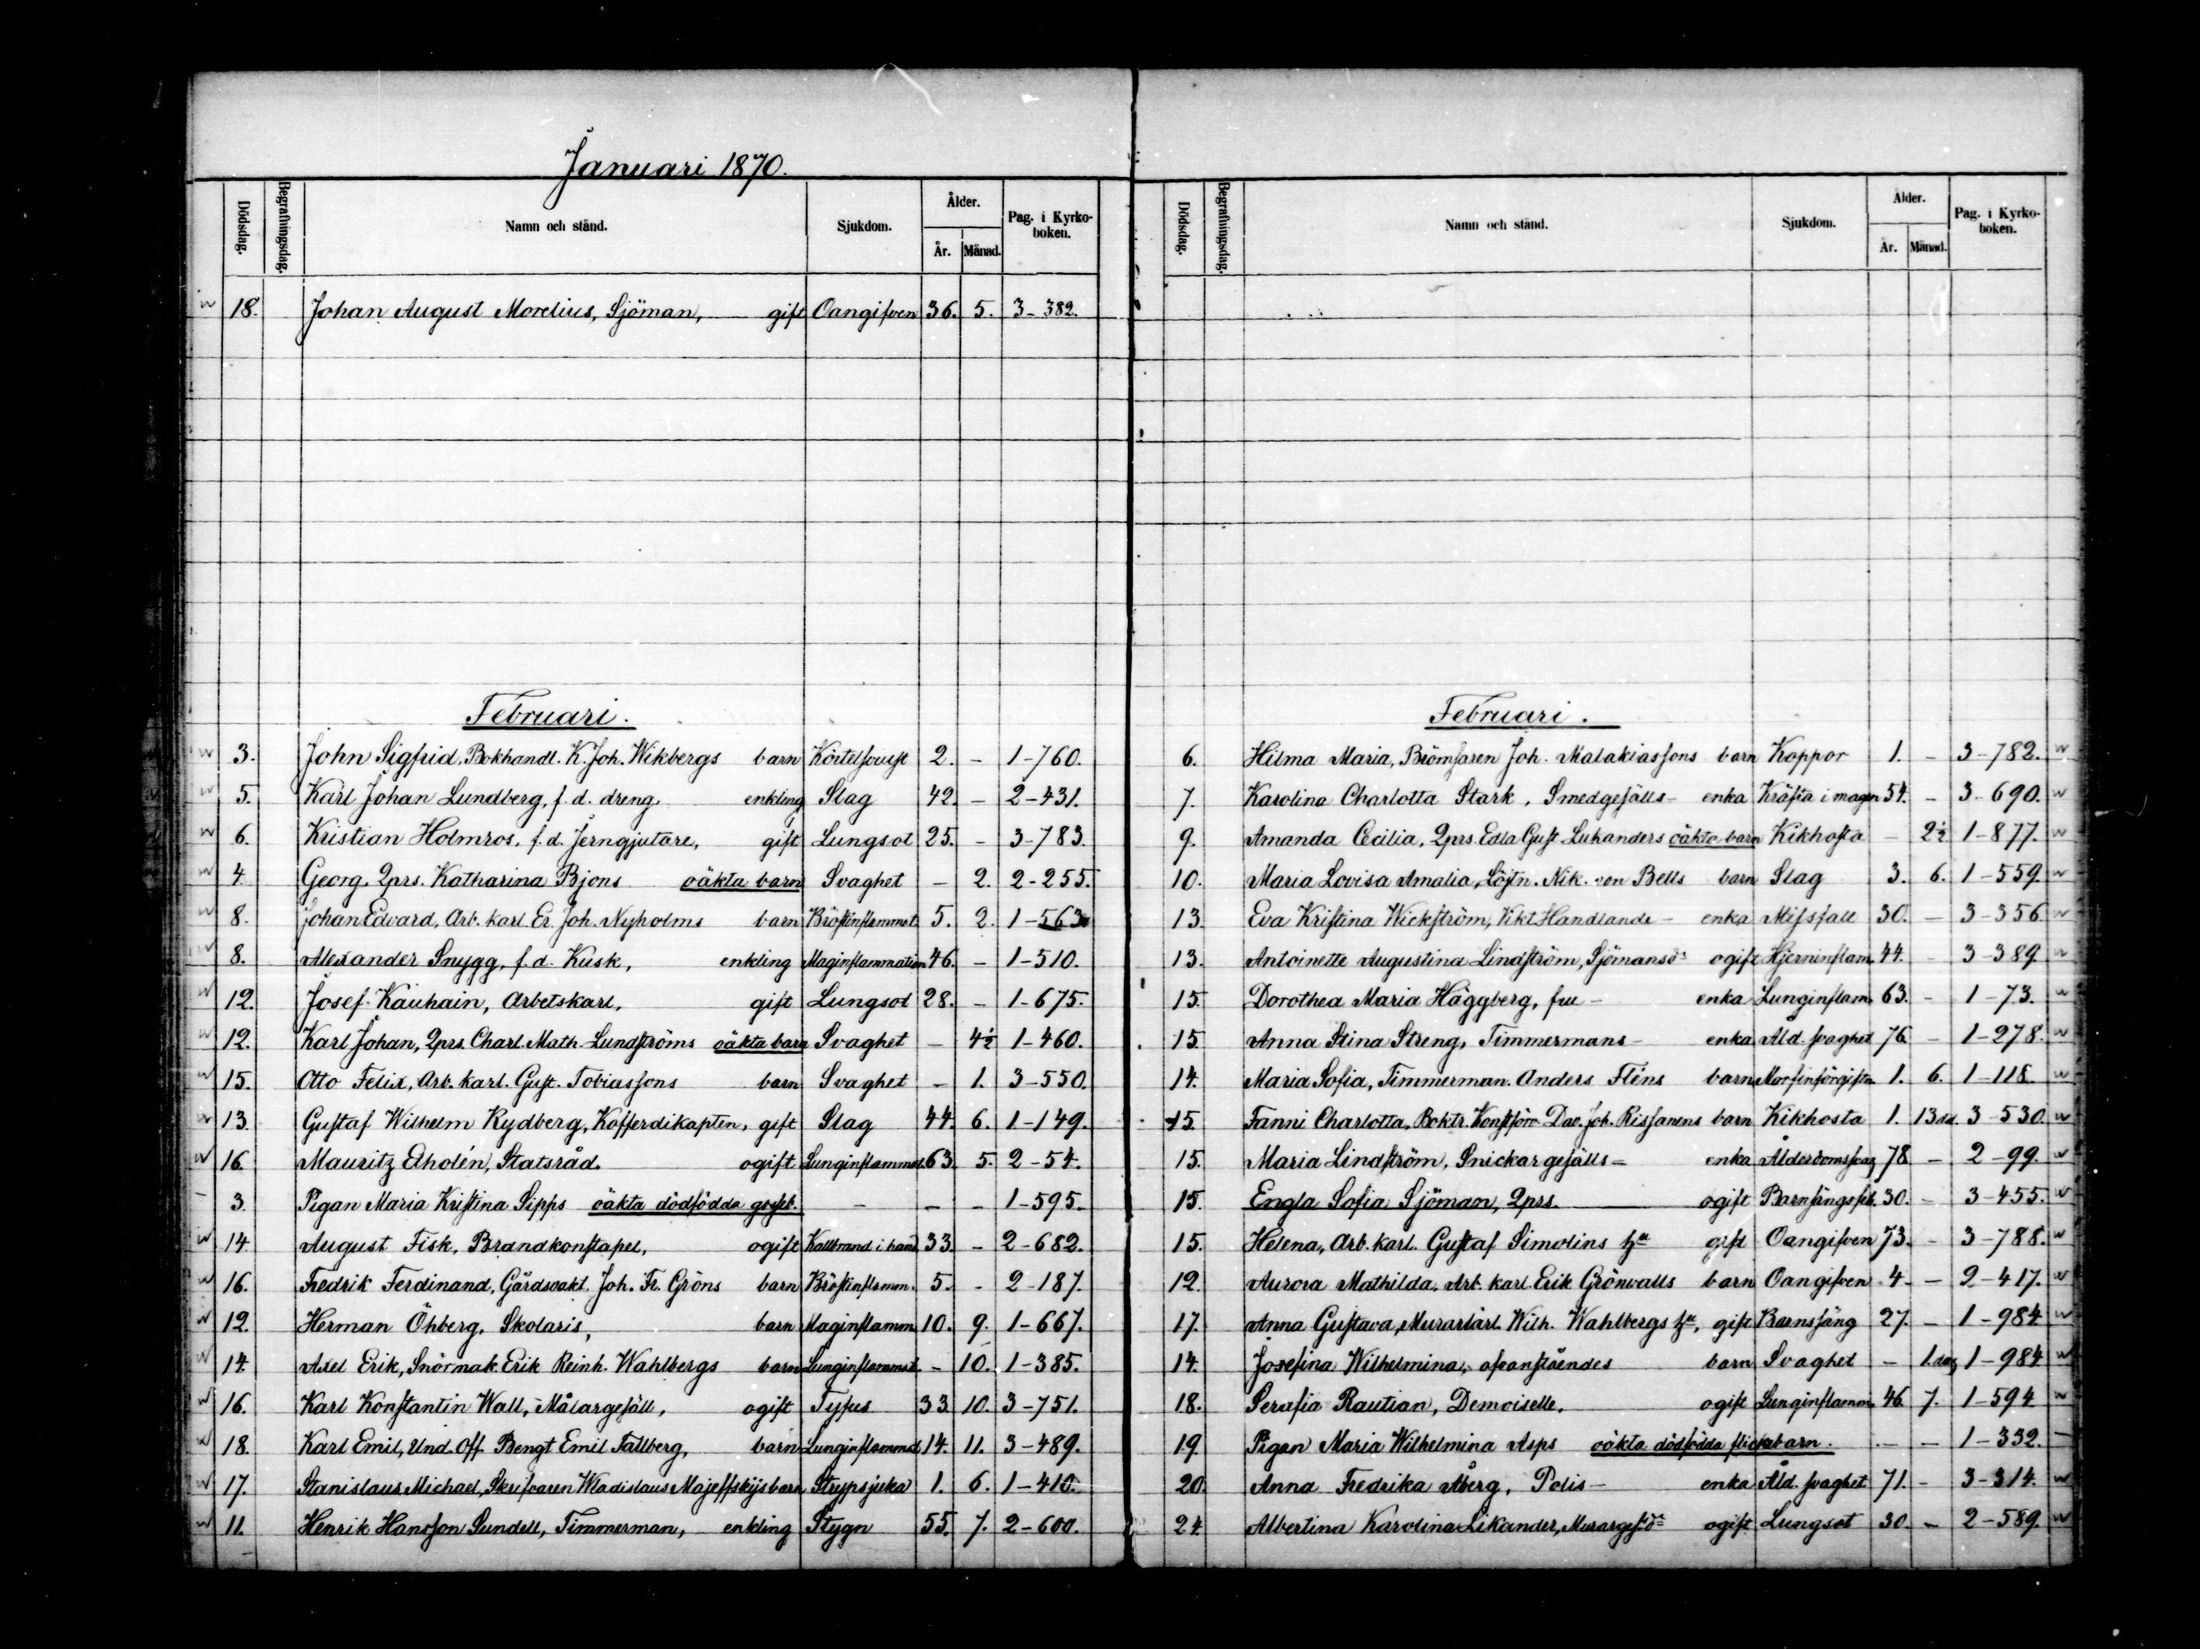 Januari 1870.
Dödsdag. Begrafningsdag. Namn och stånd. Sjukdom. Ålder. År. Månad. Pag. i Kyrko-boken.
18. Johan August Morelius, Sjöman, gift Oangifven 36. 5. 3-382.
Februari.
3. John Sigfrid, Bokhandl. K. Joh. Wikbergs barn 2. - 1-760.
5. Karl Johan Lundberg, f. d. dreng. enkling Slag 42. - 2-431.
6. Kristian Holmros, f. d. Jerngjutare, gift Lungsot 25. - 3-783.
4. Georg, Qprs. Katharina Bjons oäkta barn Svaghet - 2. 2-255.
8. Johan Edvard, Arb. karl. Er. Joh. Nyholms barn Bröstinflammat. 5. 2. 1-563
8. Alexander Snygg, f. d. Kusk, enkling Maginflammation 46. - 1-510.
12. Josef Kauhain, Arbetskarl, gift Lungsot 28. - 1-675.
12. Karl Johan, Qprs. Charl. Math. Lundströms oäkta barn Svaghet - 4½ 1-460.
15. Otto Felix, Arb. karl. Gust. Tobiassons barn Svaghet - 1. 3-550.
13. Gustaf Wilhelm Rydberg, Kofferdikapten, gift Slag 44. 6. 1-149.
16. Mauritz Eholén, Statsråd. ogift Lunginflammat. 63. 5. 2-54.
3. Pigan Maria Kristina Sipps oäkta dödfödda gosseb. - - - 1-595.
14. August Fisk, Brandkonstapel, ogift Kallbrand i hand. 33. - 2-682.
16. Fredrik Ferdinand, Gårdsvakt. Joh. Fr. Gröns barn Bröstinflamm. 5. - 2-187.
12. Herman Öhberg, Skolaris, barn Maginflamm. 10. 9. 1-667.
14. Axel Erik, Snörmak. Erik Reinh. Wahlbergs barn Lunginflammat. - 10. 1-385.
16. Karl Konstantin Wall, Målargesäll, ogift Tyfus 33. 10. 3-751.
18. Karl Emil, Und. Off. Bengt Emil Tallberg, barn Lunginflammat. 14. 11. 3-489.
17. Stanislaus Michael, Skrifvaren Wladislaus Majeffskijs barn Strypsjuka 1. 6. 1-410.
11. Henrik Hansson Sundell, Timmerman, enkling Stygn 55. 7. 2-600.
Dödsdag. Begrafningsdag. Namn och stånd. Sjukdom. Ålder. År. Månad. Pag. i Kyrko-boken.
Februari.
6. Hilma Maria, Joh. Malakiassons barn Koppor 1. - 3-782.
7. Karolina Charlotta Stark, Smedgesälls- enka Kräfta i magen 54. - 3-690.
9. Amanda Cecilia, Qprs. Edla Gust. Luhanders oäkta barn Kikhosta - 2½ 1-877.
10. Maria Lovisa Amalia, Löjtn. Nik. von Bells barn Slag 3. 6. 1-559.
13. Eva Kristina Wickström, Vikt. Handlande- enka Missfall 30. - 3-356
13. Antoinette Augustina Lindström, Sjömansd:r ogift Hjerninflam. 44. - 3-389.
15. Dorothea Maria Häggberg, fru- enka Lunginflam. 63. - 1-73.
15. Anna Stina Streng, Timmermans- enka Åld. svaghet 76. - 1-278.
14. Maria Sofia, Timmerman. Anders Fléns barn Morfinförgiftn. 1. 6. 1-118.
15. Fanni Charlotta, Boktr. Konstförv. Dav. Joh. Rissanens barn Kikhosta 1. 13 da. 3-530.
15. Maria Lindström, Snickargesälls- enka Ålderdomssvag. 78 - 2-99.
15. Engla Sofia Sjöman, Qprs. ogift Barnsängsfeb. 30. - 3-455.
15. Helena, Arb. karl. Gustaf Simolins h:u gift Oangifven 73. - 3-788.
12. Aurora Mathilda, Arb. karl. Erik Grönvalls barn Oangifven 4. - 2-417.
17. Anna Gustava, Wilh. Wahlbergs h:u, gift Barnsäng 27. - 1-984
14. Josefina Wilhelmina, ofvanståendes barn Svaghet - 1. dag 1-984
18. Serafia Rautian, Demoiselle, ogift Lunginflamm. 46. 7. 1-594
19. Pigan Maria Wilhelmina Asps oäkta dödfödda flickebarn. - - 1-332.
20. Anna Fredrika Åberg, Polis- enka Åld. svaghet 71. - 3-314.
24. Albertina Karolina Sikander, Murargesd:r ogift Lungsot 30. - 2-589.